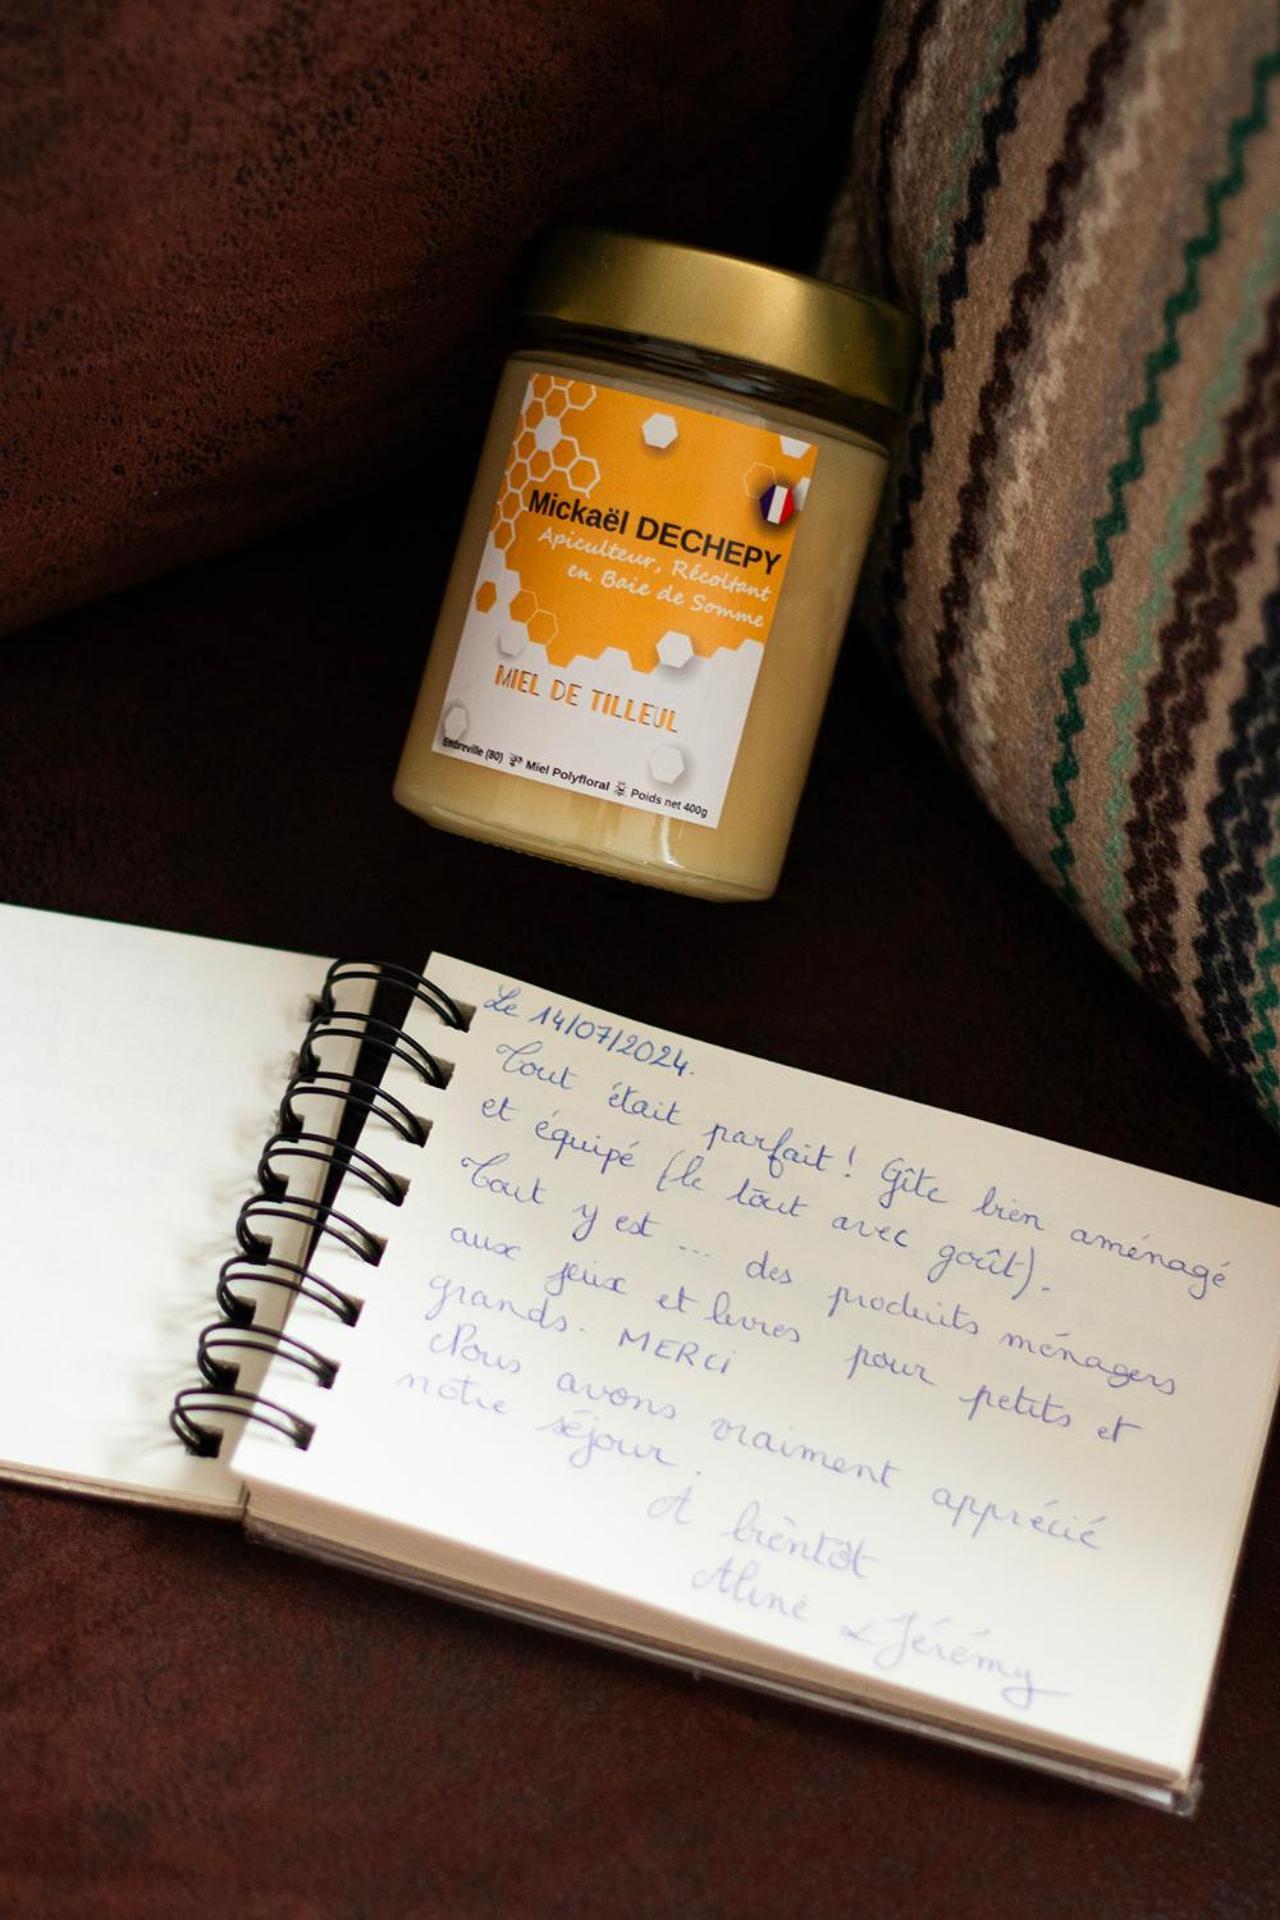 Mickaël DECHEPY
Apiculteur, Récoltant
en Baie de Somme
MIEL DE TILLEUL
Embreville (80) Miel Polyfloral Poids net 400g
Le 14/07/2024.
Tout était parfait! Gîte bien aménagé
et équipé (le tout avec goût).
Tout y est ... des produits ménagers
aux jeux et livres pour petits et
grands. MERCi
Nous avons vraiment apprécié
notre séjour.
A bientôt
Aline & Jérémy